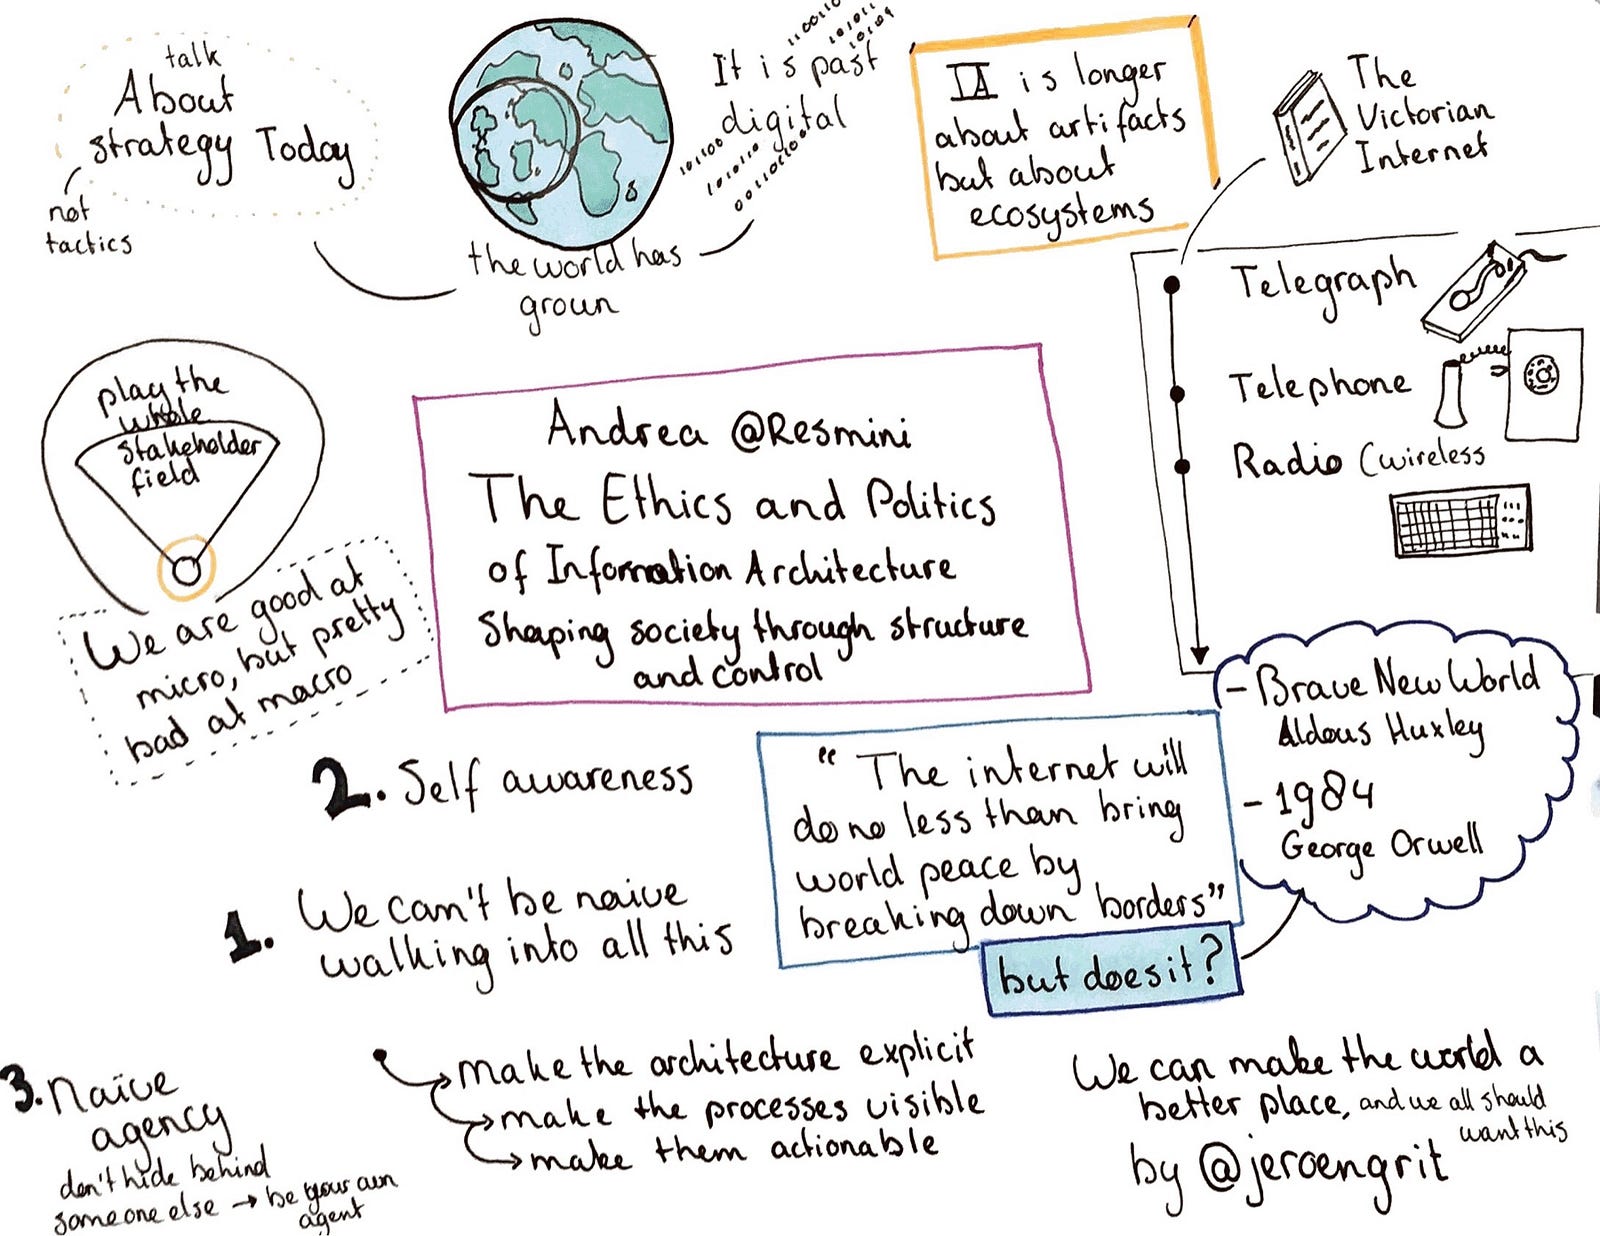 talk
About
strategy Today
not
tactics
the world has
groun
It is past
digital
110011
101011
10101
101100
101110
00110110
IA is longer
about artifacts
but about
ecosystems
The
Victorian
Internet
Telegraph
Telephone
Radio (wireless
- Brave New World
Aldous Huxley
- 1984
George Orwell
play the
whole
stakeholder
field
We are good at
micro, but pretty
bad at macro
Andrea @Resmini
The Ethics and Politics
of Information Architecture
Shaping society through structure
and control
"The internet will
do no less than bring
world peace by
breaking down borders"
but does it?
2. Self awareness
1. We can't be naive
walking into all this
3. Naïve
agency
don't hide behind
someone else → be your own
agent
make the architecture explicit
make the processes visible
make them actionable
We can make the world a
better place, and we all should
want this
by @jeroengrit